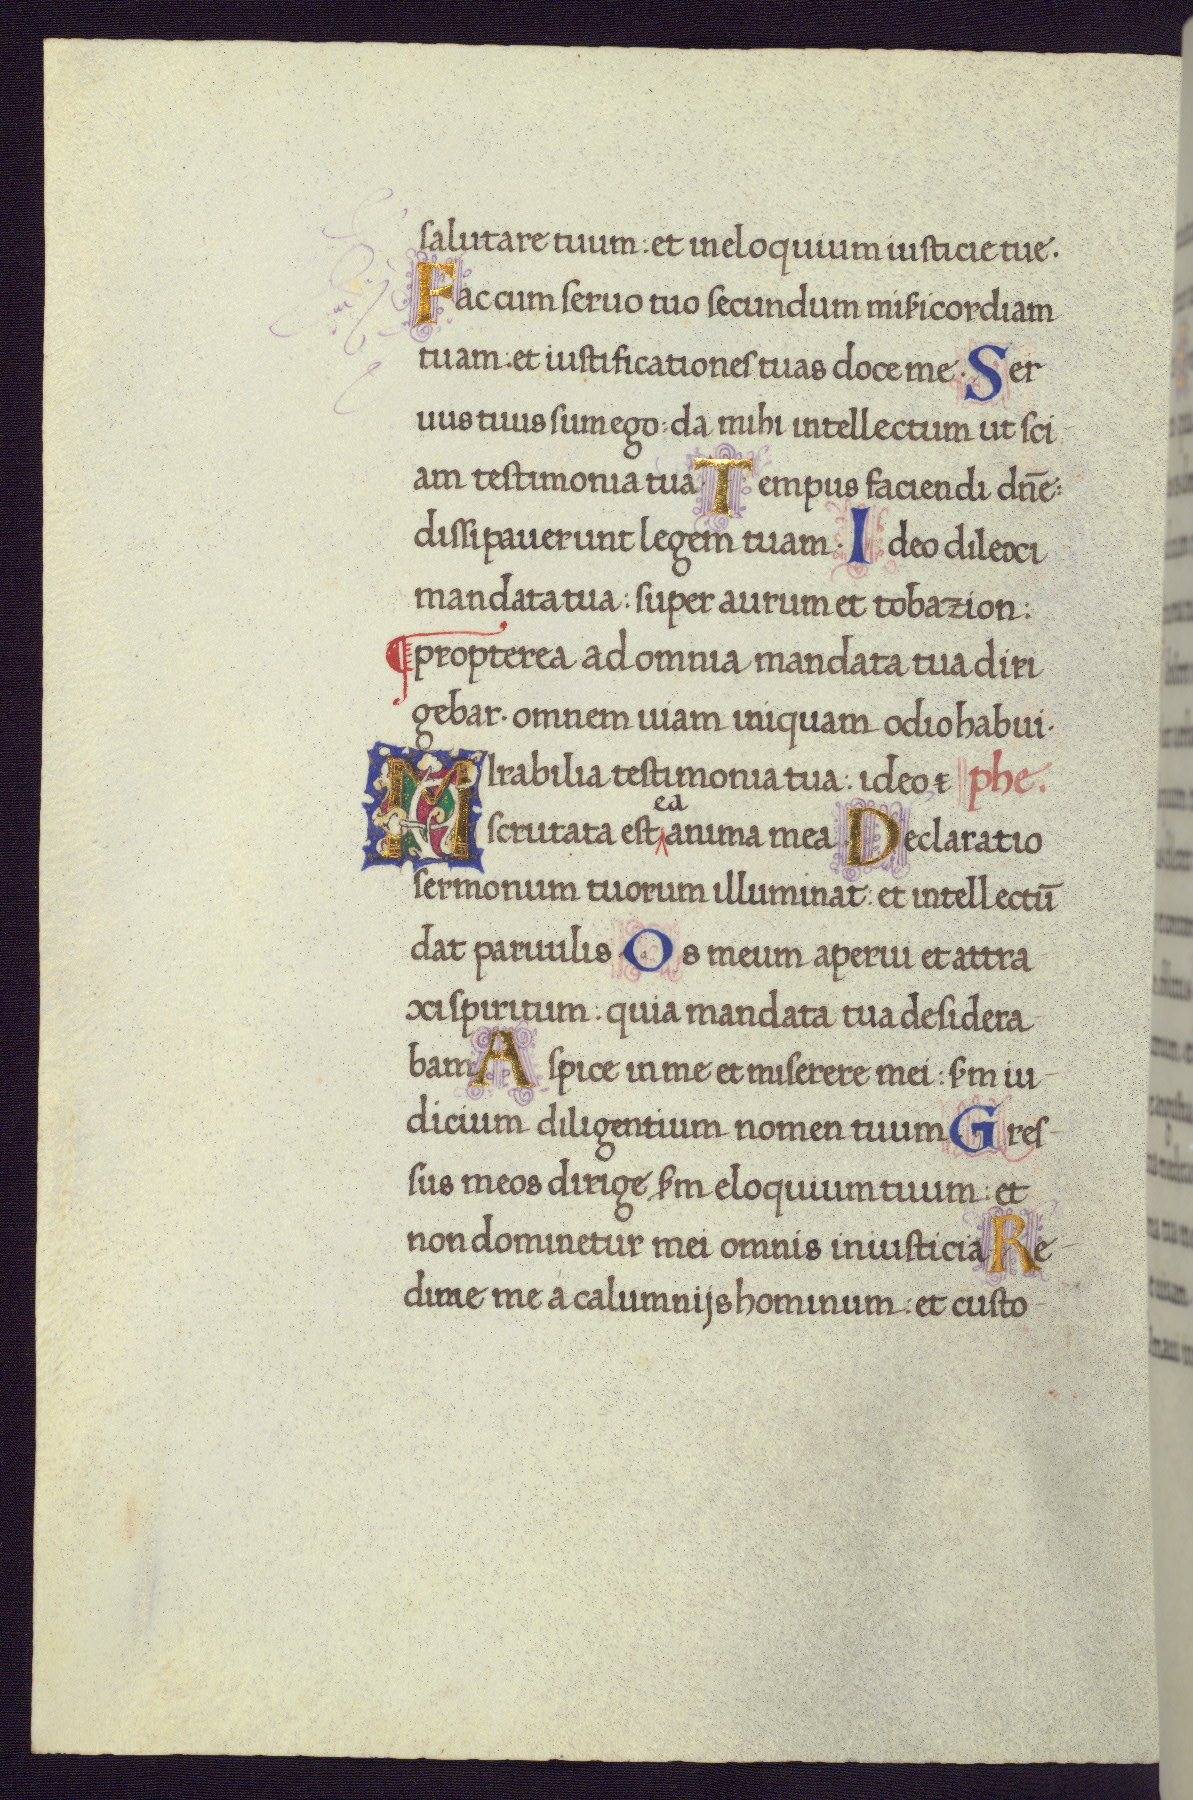 salutare tuum: et in eloquium iusticie tue.
Fac cum seruo tuo secundum mi&#x338;sicordiam
tuam: et iustificationes tuas doce me. Ser
uus tuus sum ego: da mihi intellectum ut sci-
am testimonia tua. Tempus faciendi dn̄e:
dissipauerunt legem tuam. Ideo dilexi
mandata tua: super aurum et tobazion:
¶propterea ad omnia mandata tua diri
gebar. omnem uiam iniquam odio habui.
MIrabilia testimonia tua: ideo ⁊ phe.
ea
scrutata est ‸anima mea. Declaratio
sermonum tuorum illuminat: et intellectū
dat paruulis. Os meum aperui et attra
xi spiritum: quia mandata tua desidera-
bam. Aspice in me et miserere mei: s̄m iu-
dicium diligentium nomen tuum. Gres-
sus meos dirige s̄m eloquium tuum: et
non dominetur mei omnis iniusticia. Re-
dime me a calumnijs hominum: et custo-